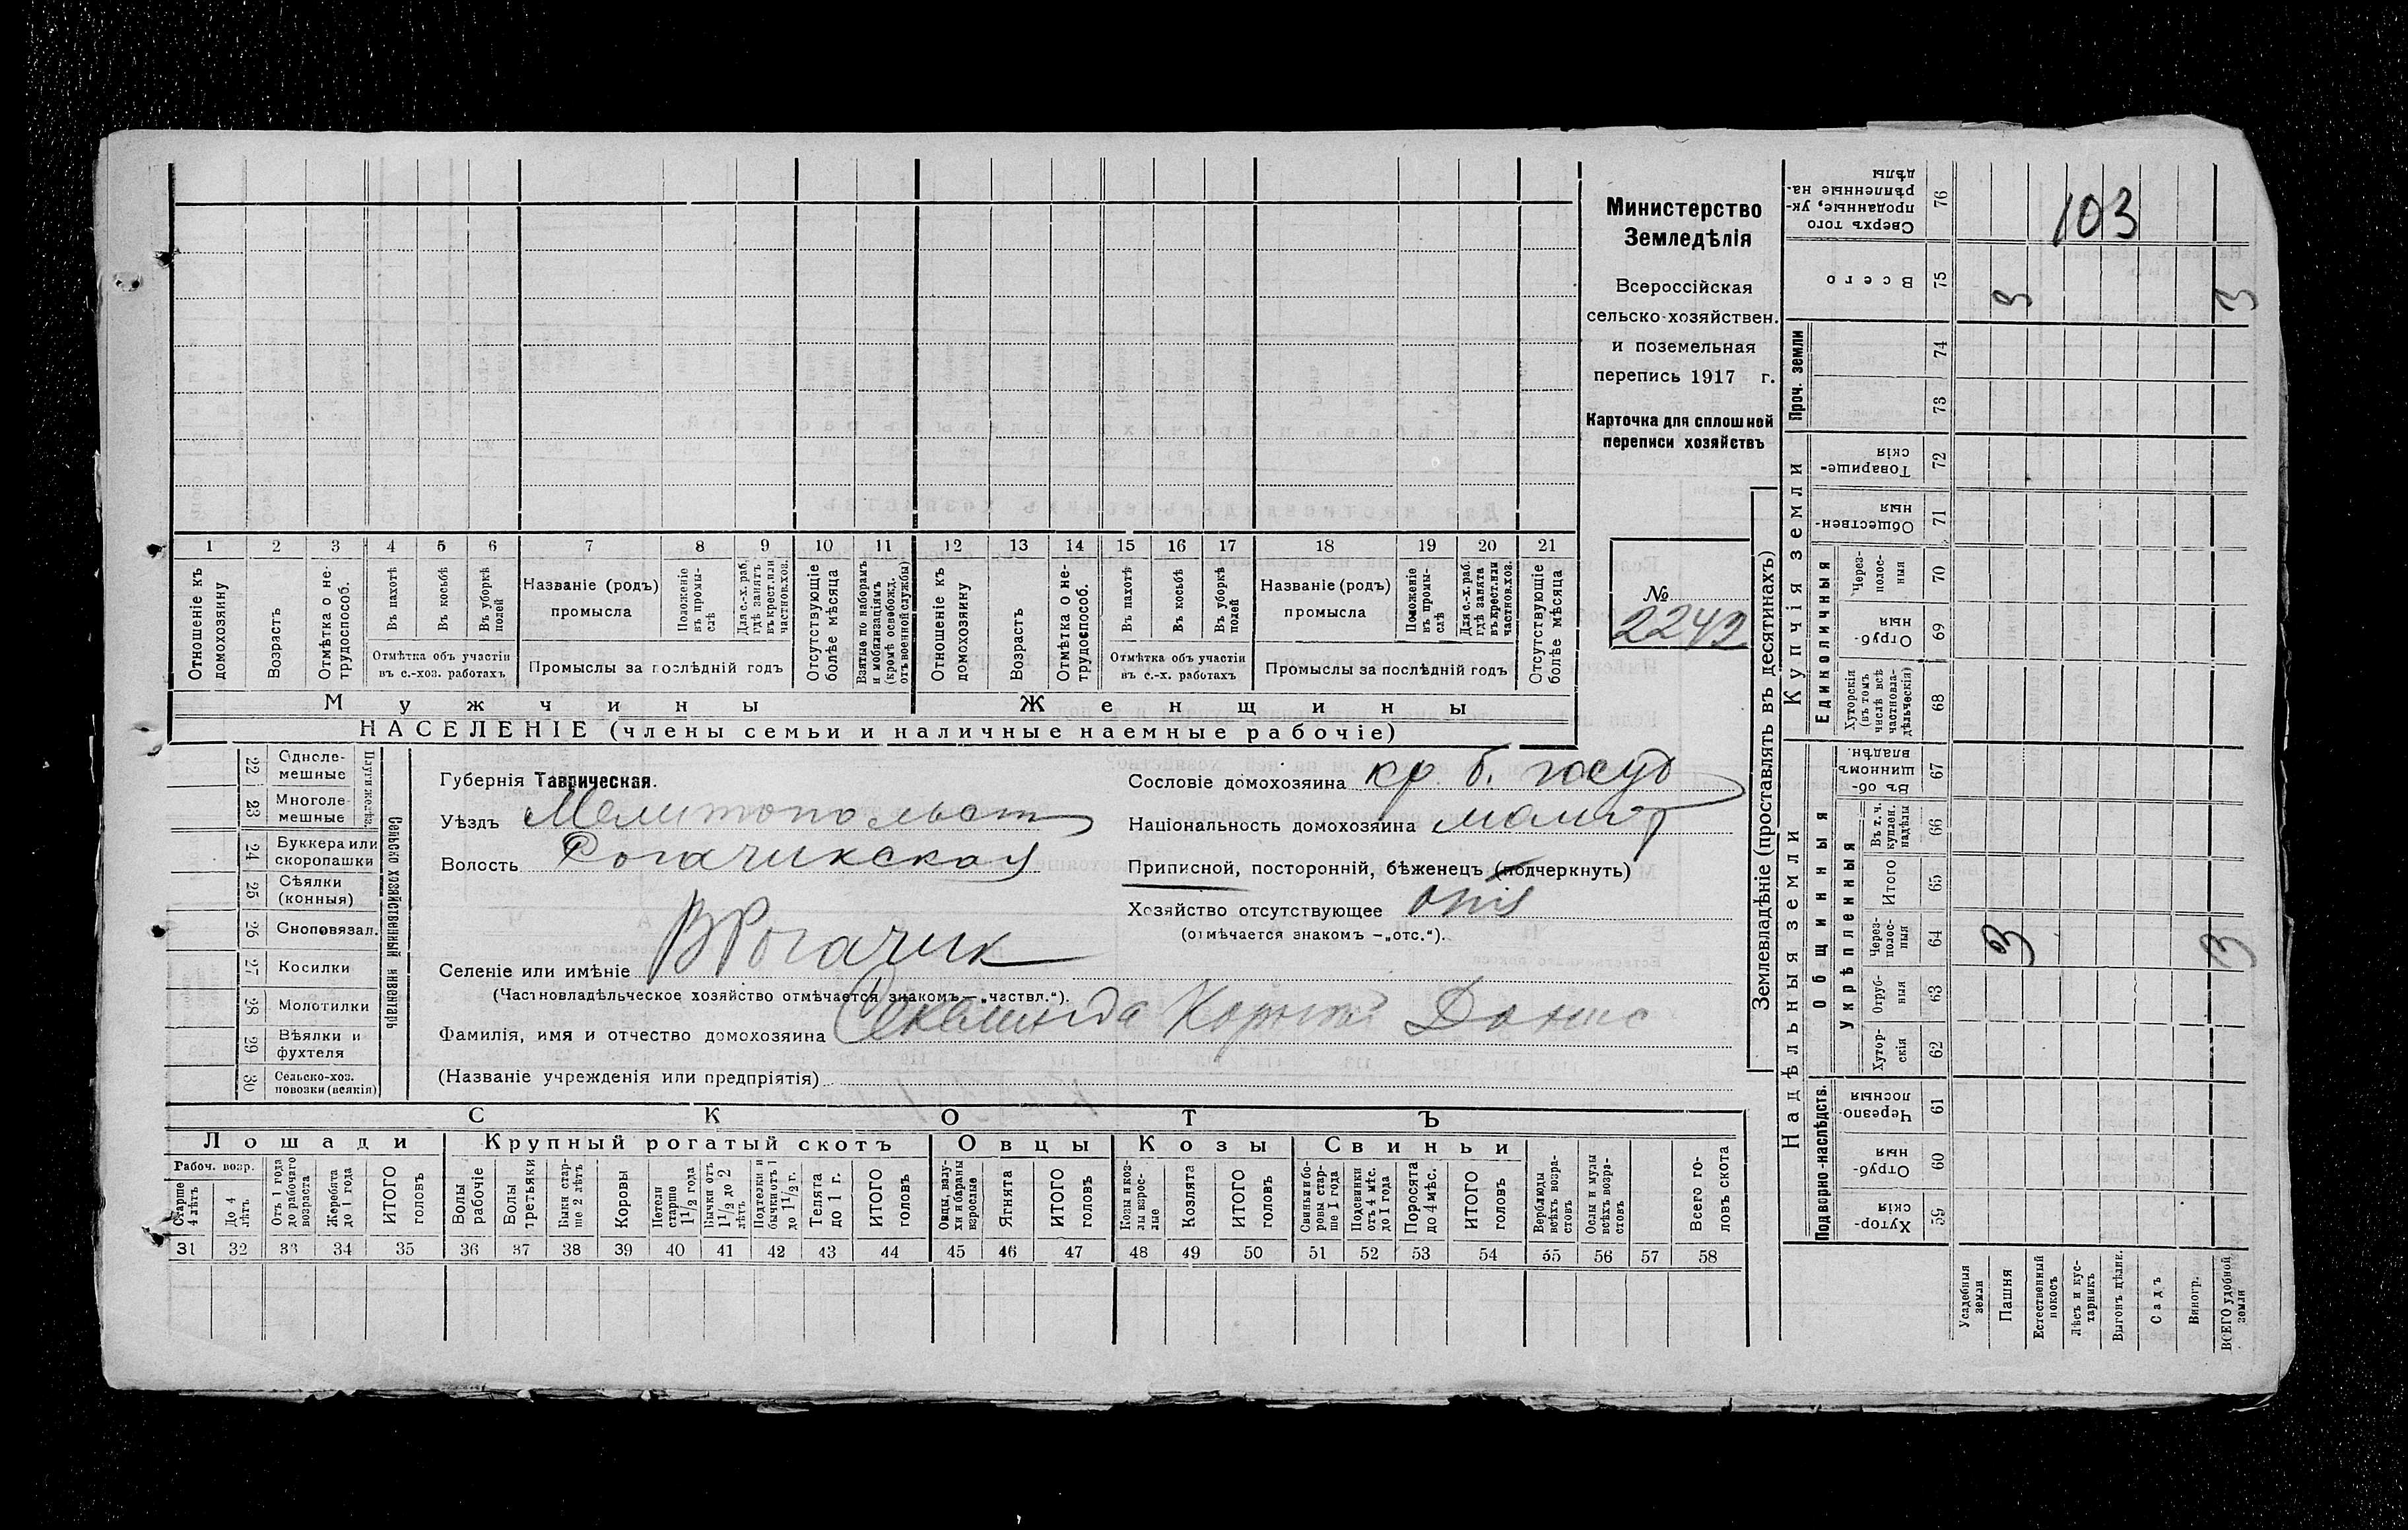 1 2 3 4 5 6 7 8 9 10 11 12 13 14 15 16 17 18 19 20 21
Отношеніе къ домохозяину
Возрастъ
Отмѣтка о не-трудоспособ.
Въ пахотѣ
Въ косьбѣ
Въ уборкѣ полей
Отмѣтка объ участіи
въ с.-хоз. работахъ
Названіе (родъ)
промысла
Положеніе въ промы-слѣ
Для с.-х. раб. гдѣ занятъ въ крест. или частнов. хоз.
Промыслы за послѣдній годъ
Отсутствующіе болѣе мѣсяца
Взятые по наборамъ и мобилизаціямъ (кромѣ освобожд. отъ военной службы)
Отношеніе къ домохозяину
Возрастъ
Отмѣтка о не-трудоспособ.
Въ пахотѣ
Въ косьбѣ
Въ уборкѣ полей
Отмѣтка объ участіи
въ с.-х. работахъ
Названіе (родъ)
промысла
Положеніе въ промы-слѣ
Для с.-х. раб. гдѣ занята въ крест. или частнов. хоз.
Промыслы за послѣдній годъ
Отсутствующіе болѣе мѣсяца
Мужчины Женщины
НАСЕЛЕНІЕ (члены семьи и наличные наемные рабочіе)
Министерство
Земледѣлія
Всероссійская
сельско-хозяйствен.
и поземельная
перепись 1917 г.
Карточка для сплошной
переписи хозяйствъ
№
2249
22 Одноле-мешные
23 Многоле-мешные
Плуги желѣз.
24 Буккера или скоропашки
25 Сѣялки (конныя)
26 Сноповязал.
27 Косилки
28 Молотилки
29 Вѣялки и фухтеля
30 Сельско-хоз. повозки (всякія)
Сельско хозяйственный инвентарь
Губернія Таврическая.
Уѣздъ Мелитопольск
Волость Рогачикская
Селеніе или имѣніе ВРогачик
(Частновладѣльческое хозяйство отмѣчается знакомъ — „частвл.“).
Фамилія, имя и отчество домохозяина
(Названіе учрежденія или предпріятія)
Сословіе домохозяина кр. б. госуд
Національность домохозяина малор
Приписной, посторонній, бѣженецъ (подчеркнуть)
Хозяйство отсутствующее отс
(отмѣчается знакомъ — „отс.“).
СКОТЪ
Лошади Крупный рогатый скотъ Овцы Козы Свиньи
Рабоч. возр.
Старше 4 лѣтъ
До 4 лѣтъ
Отъ 1 года до рабочаго возраста
Жеребята до 1 года
ИТОГО головъ
Волы рабочіе
Волы третьяки
Быки стар-ше 2 лѣтъ
Коровы
Нетели старше 1 1/2 года
Бычки отъ 1 1/2 до 2 лѣтъ
Подтелки и бычки отъ 1 до 1 1/2 г.
Телята до 1 г.
ИТОГО головъ
Овцы, валу-хи и бараны взрослые
Ягнята
ИТОГО головъ
Козы и коз-лы взрос-лые
Козлята
ИТОГО головъ
Свиньи и бо-ровы стар-ше 1 года
Подсвинки отъ 4 мѣс. до 1 года
Поросята до 4 мѣс.
ИТОГО головъ
Верблюды всѣхъ возра-стовъ
Ослы и мулы всѣхъ возра-стовъ
Всего го-ловъ скота
31 32 33 34 35 36 37 38 39 40 41 42 43 44 45 46 47 48 49 50 51 52 53 54 55 56 57 58
Землевладѣніе (проставлять въ десятинахъ)
Надѣльныя земли Купчія земли Проч. земли
Подворно-наслѣдств.
Общинныя
Укрѣпленныя
Единоличныя
Сверхъ того проданные, ук-рѣпленные на-дѣлы 76
103
Всего 75
3 3
74
73
Товарище-скія 72
Обществен-ныя 71
Через-полос-ныя 70
Отруб-ныя 69
Хуторскія (въ томъ числѣ всѣ частновла-дѣльческія) 68
Въ об-щинномъ владѣн. 67
Въ т. ч. куплен. надѣлы 66
Итого 65
Через-полос-ныя 64
3 3
Отруб-ныя 63
Хутор-скія 62
Черезпо-лосныя 61
Отруб-ныя 60
Хутор-скія 59
Усадебныя земли
Пашня
Естественный покосъ
Лѣсъ и кус-тарникъ
Выгонъ дѣлик.
Садъ
Виногр.
ВСЕГО удобной земли